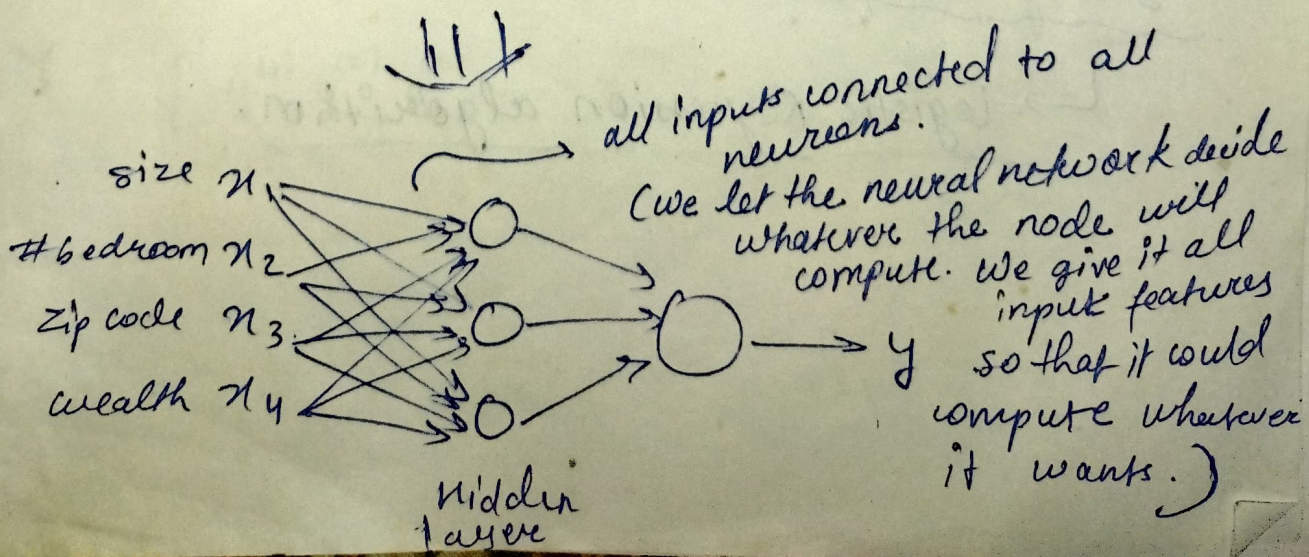 all inputs connected to all
neurons.
(we let the neural network decide
whatever the node will
compute. We give it all
input features
so that it could
compute whatever
it wants.)
size x1
#bedroom x2
zip code x3
wealth x4
y
Hidden
layer